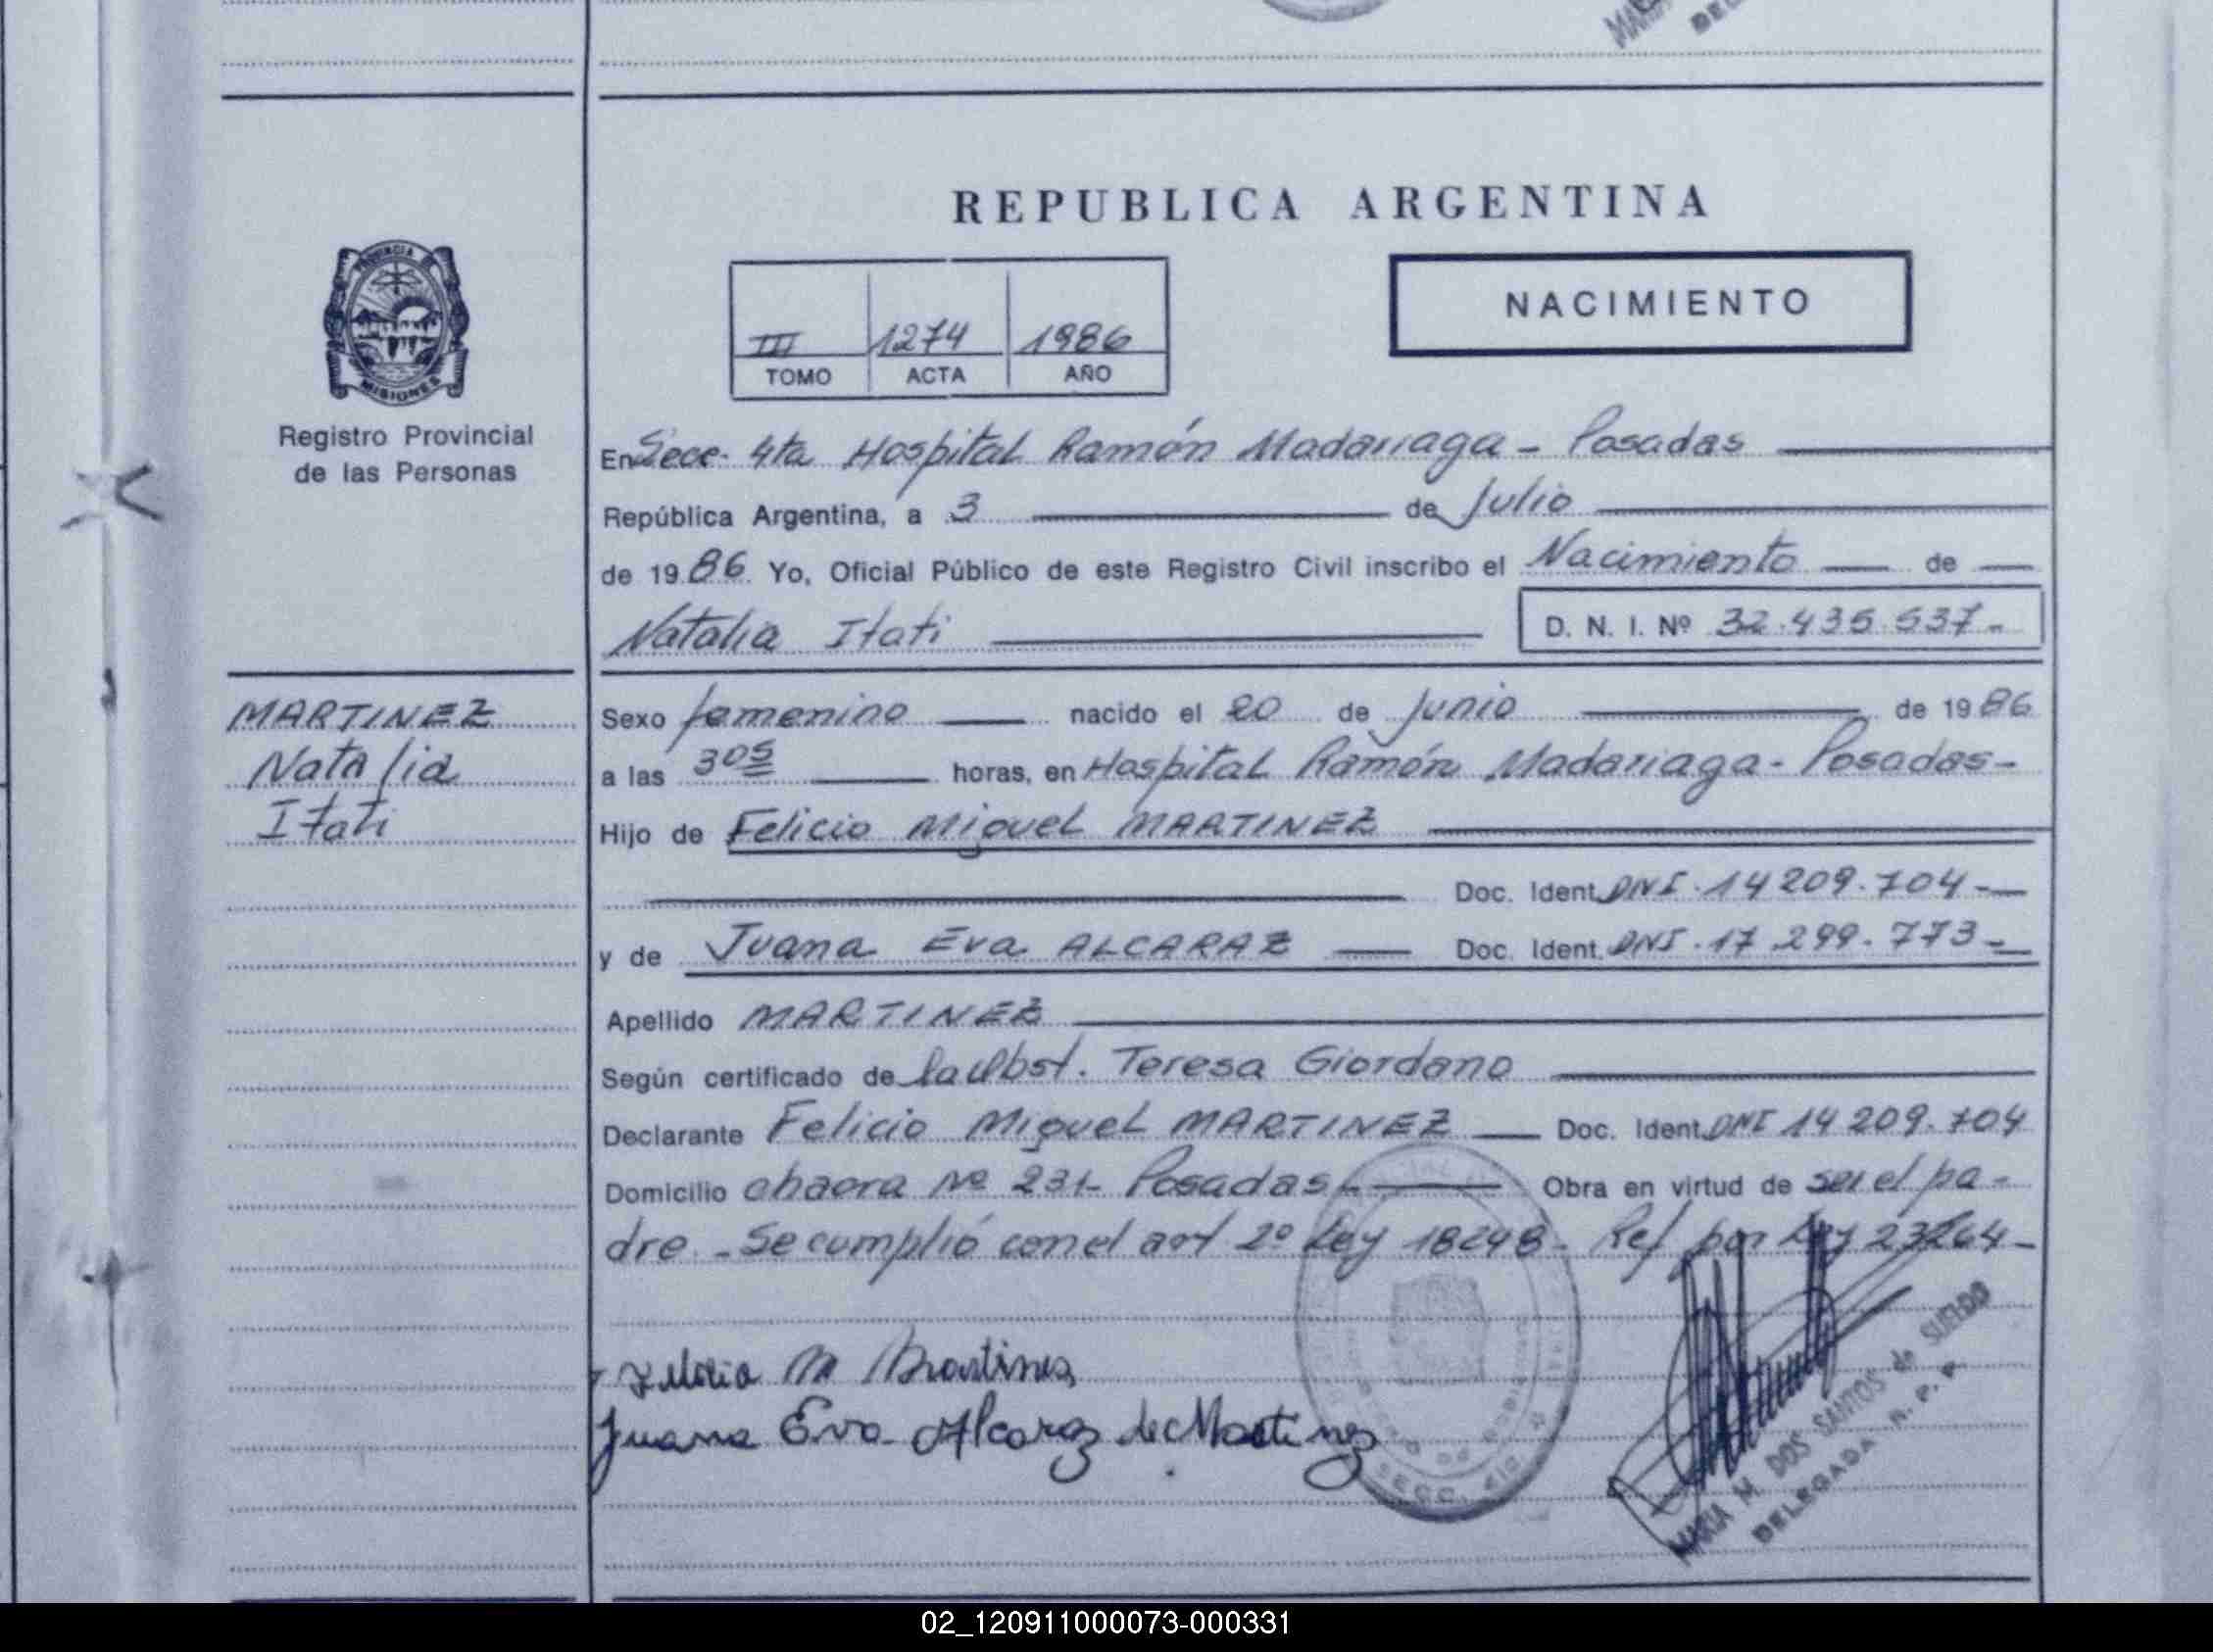 MARIA
DE
REPUBLICA ARGENTINA
NACIMIENTO
III 1274 1986
TOMO ACTA AÑO
PROVINCIA DE
MISIONES
Registro Provincial
de las Personas
En Secc. 4ta Hospital Ramón Madariaga - Posadas
República Argentina, a 3 de Julio
de 1986 Yo, Oficial Público de este Registro Civil inscribo el Nacimiento de
Natalia Itati D. N. I. Nº 32.435.537-
MARTINEZ
Natalia
Itati
Sexo femenino nacido el 20 de Junio de 1986
a las 3 05 horas, en Hospital Ramón Madariaga - Posadas-
Hijo de Felicio Miguel MARTINEZ
Doc. Ident. DNI. 14 209.704-
y de Juana Eva ALCARAZ Doc. Ident. DNI. 17.299.773-
Apellido MARTINEZ
Según certificado de la Obst. Teresa Giordano
Declarante Felicio Miguel MARTINEZ Doc. Ident. DNI 14 209.704
Domicilio chacra Nº 231- Posadas- Obra en virtud de ser el pa-
dre - Se cumplió con el art 2º Ley 18248- Ref por Ley 23264-
Felicio M Martines
Juana Eva Alcaraz de Martinez
SECC. 4ta
MARIA M. DOS SANTOS de SUELDO
DELEGADA R. P. P.
02_120911000073-000331